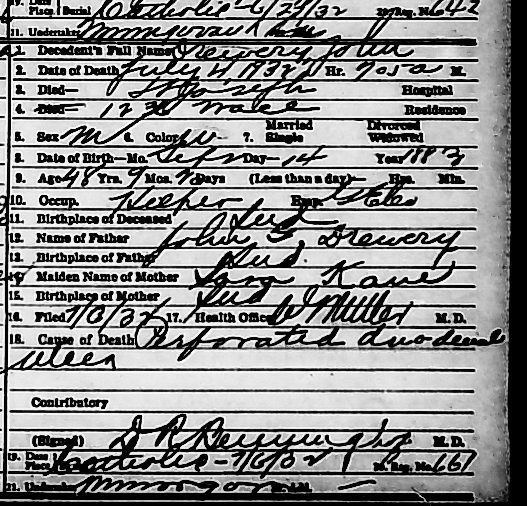 Place Burial Catholic - 6/29/32 20. Reg. No. 642
21. Undertaker
1. Decedent's Full Name Drewery John
2. Date of Death July 4, 1932 Hr. 705a M.
3. Died— St Joseph Hospital
4. Died— 1236 Residence
5. Sex M 6. Color W 7. Married Single Divorced Widowed
8. Date of Birth—Mo. Sept Day 14 Year 1883
9. Age 48 Yrs. 9 Mos. Days (Less than a day) Hrs. Min.
10. Occup. Helper Emp.
11. Birthplace of Deceased Ind
12. Name of Father John Drewery
13. Birthplace of Father Ind.
14. Maiden Name of Mother Sara Kane
15. Birthplace of Mother Ind
16. Filed 7/6/32 17. Health Officer W Miller M. D.
18. Cause of Death Perforated duodenal
ulcer
Contributory
(Signed) D R Benninghof M. D.
19. Date Place Catholic - 7/6/32 20. Reg. No. 661
21. Undertaker